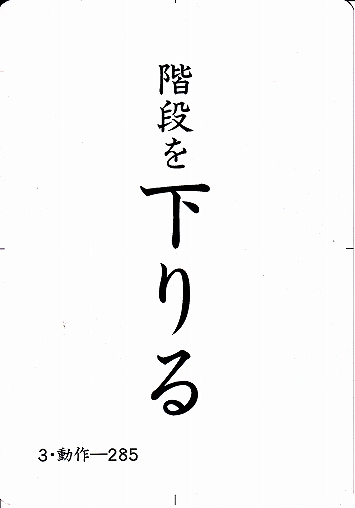 階段を下りる
3・動作—285